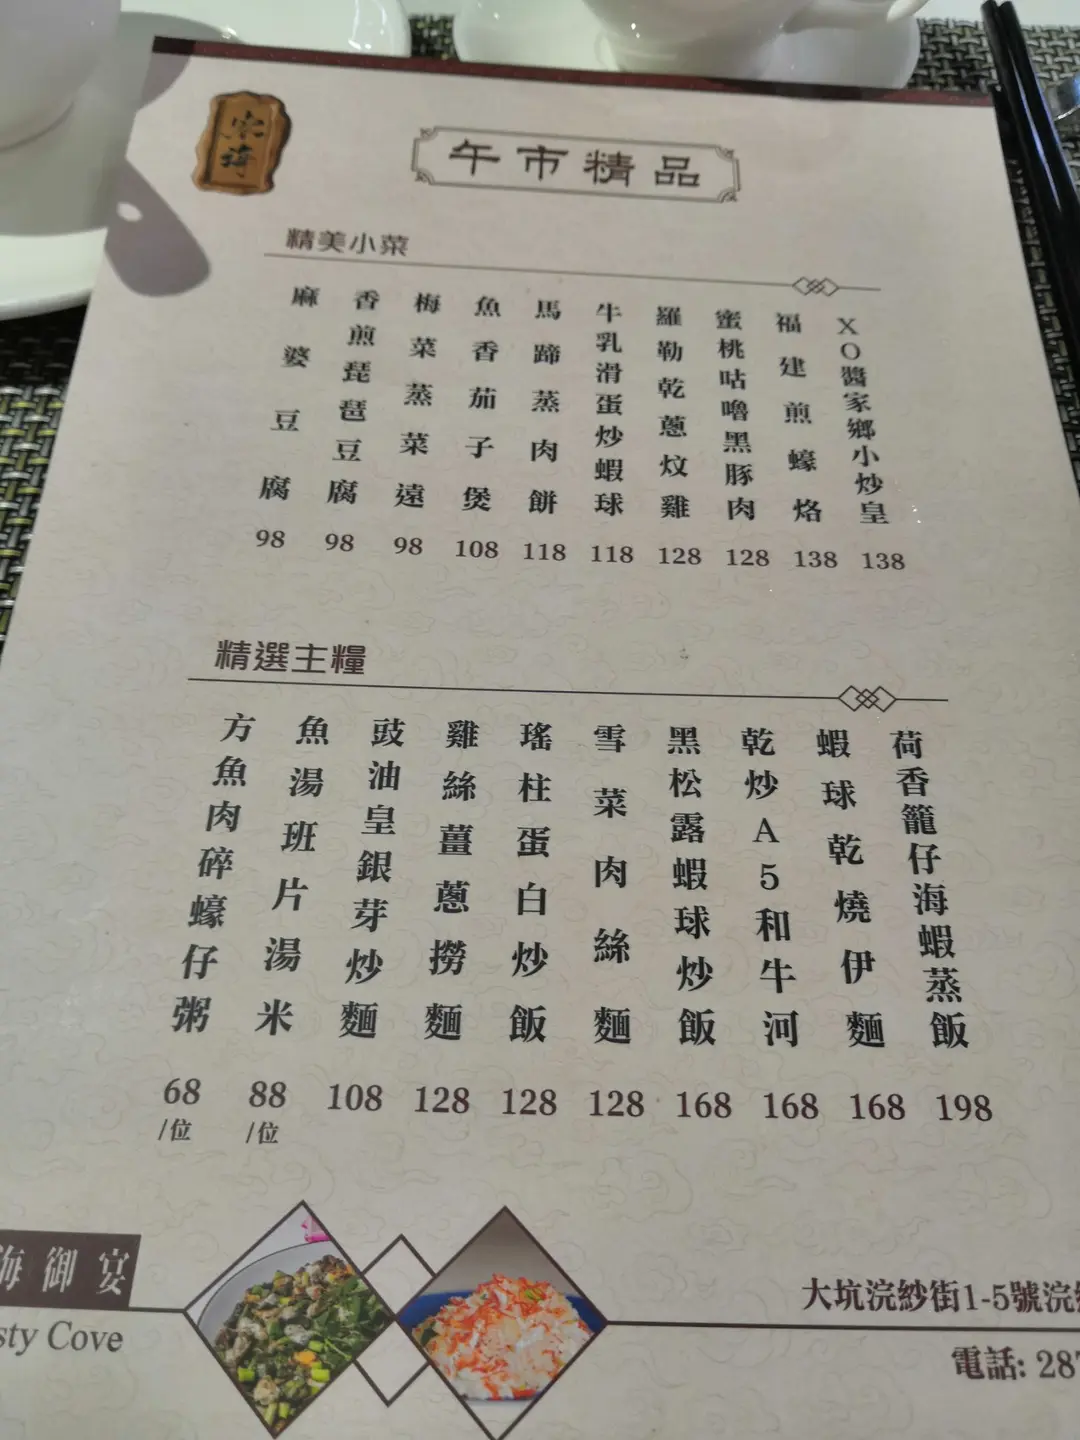 宋海
午市精品
精美小菜
XO醬家鄉小炒皇 138
福建煎蠔烙 138
蜜桃咕嚕黑豚肉 128
羅勒乾蔥炆雞 128
牛乳滑蛋炒蝦球 118
馬蹄蒸肉餅 118
魚香茄子煲 108
梅菜蒸菜遠 98
香煎琵琶豆腐 98
麻婆豆腐 98
精選主糧
荷香籠仔海蝦蒸飯 198
蝦球乾燒伊麵 168
乾炒A5和牛河 168
黑松露蝦球炒飯 168
雪菜肉絲麵 128
瑤柱蛋白炒飯 128
雞絲薑蔥撈麵 128
豉油皇銀芽炒麵 108
魚湯班片湯米 88/位
方魚肉碎蠔仔粥 68/位
海御宴
sty Cove
大坑浣紗街1-5號浣
電話: 287